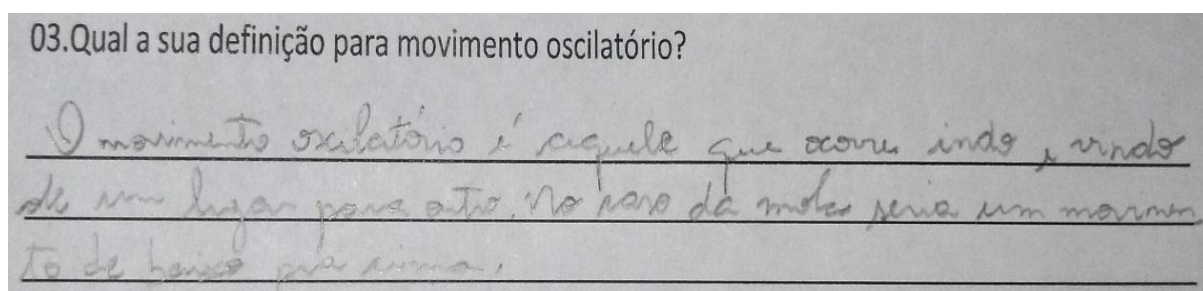 03.Qual a sua definição para movimento oscilatório?
O movimento oscilatório é aquele que ocorre indo e vindo
de um lugar para outro. No caso da mola seria um movimen
to de baixo pra cima.